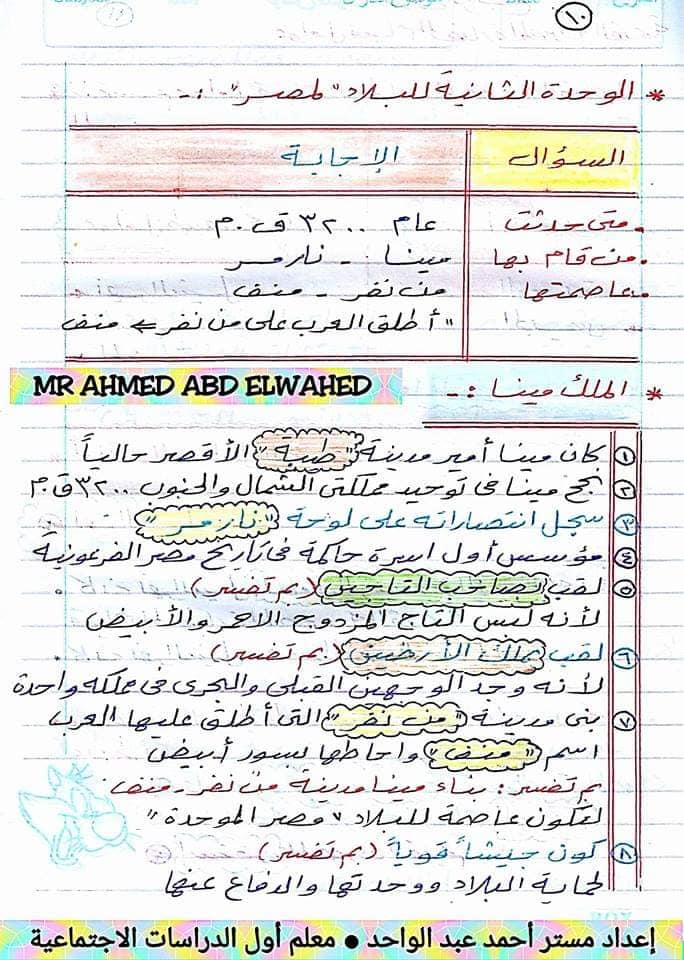 ١٠
* الوحدة الثانية للبلاد "لمصر" :-
السؤال الإجابة
. متى حدثت عام ٣٢٠٠ ق.م
. من قام بها مينا - نارمر
. عاصمتها من نفر - منف
"أطلق العرب على من نفر ← منف
* الملك مينا :-
MR AHMED ABD ELWAHED
١ كان مينا أمير مدينة "طيبة" الأقصر حالياً
٢ نجح مينا فى توحيد مملكتى الشمال والجنوب ٣٢٠٠ ق.م
٣ سجل انتصاراته على لوحة "نارمر"
٤ مؤسس أول اسرة حاكمة فى تاريخ مصر الفرعونية
٥ لقب بصاحب التاجين (بم تفسر) .
لأنه لبس التاج المزدوج الاحمر والأبيض
٦ لقب بملك الأرضين (بم تفسر) .
لأنه وحد الوجهين القبلى والبحرى فى مملكة واحدة
٧ بنى مدينة "من نفر" التى أطلق عليها العرب
اسم "منف" واحاطها بسور أبيض
بم تفسر : بناء مينا مدينة من نفر - منف
لتكون عاصمة للبلاد "مصر الموحدة"
٨ كون جيشاً قوياً (بم تفسر)
لحماية البلاد ووحدتها والدفاع عنها
إعداد مستر أحمد عبد الواحد • معلم أول الدراسات الاجتماعية